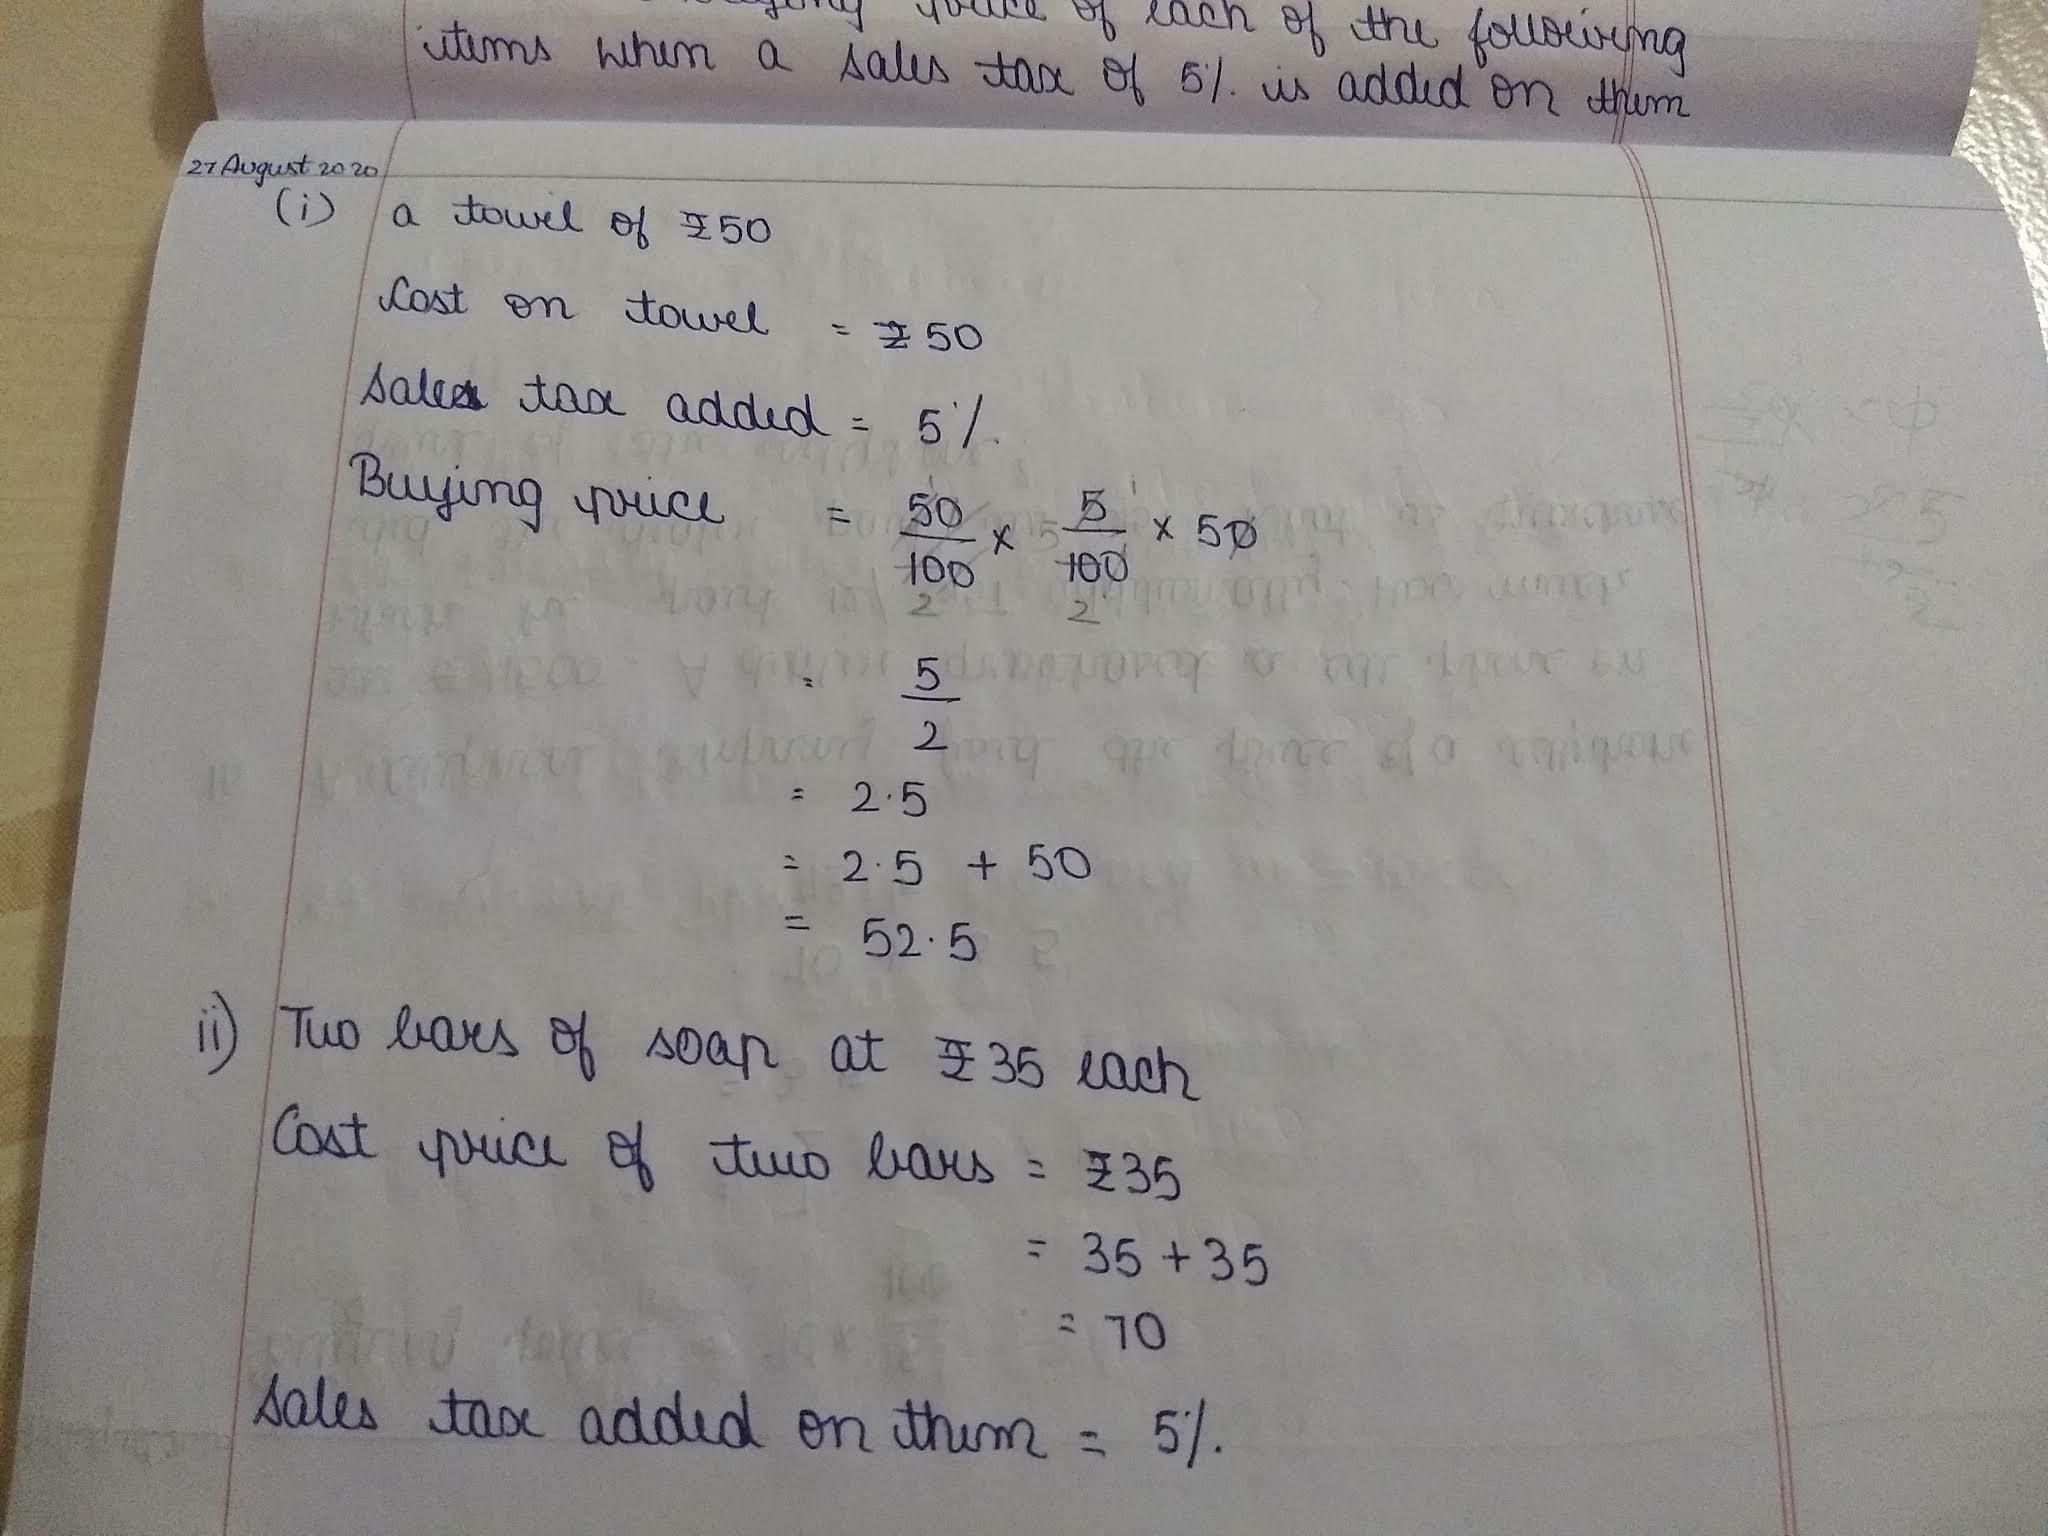 price of each of the following
items when a sales tax of 5% is added on them
27 August 2020
(i) a towel of ₹50
Cost on towel = ₹50
Sales tax added = 5%
Buying price = 50/100 × 5/100 × 50
1 1
2 2
= 5/2
= 2.5
= 2.5 + 50
= 52.5
ii) Two bars of soap at ₹35 each
Cost price of two bars = ₹35
= 35 + 35
= 70
Sales tax added on them = 5%